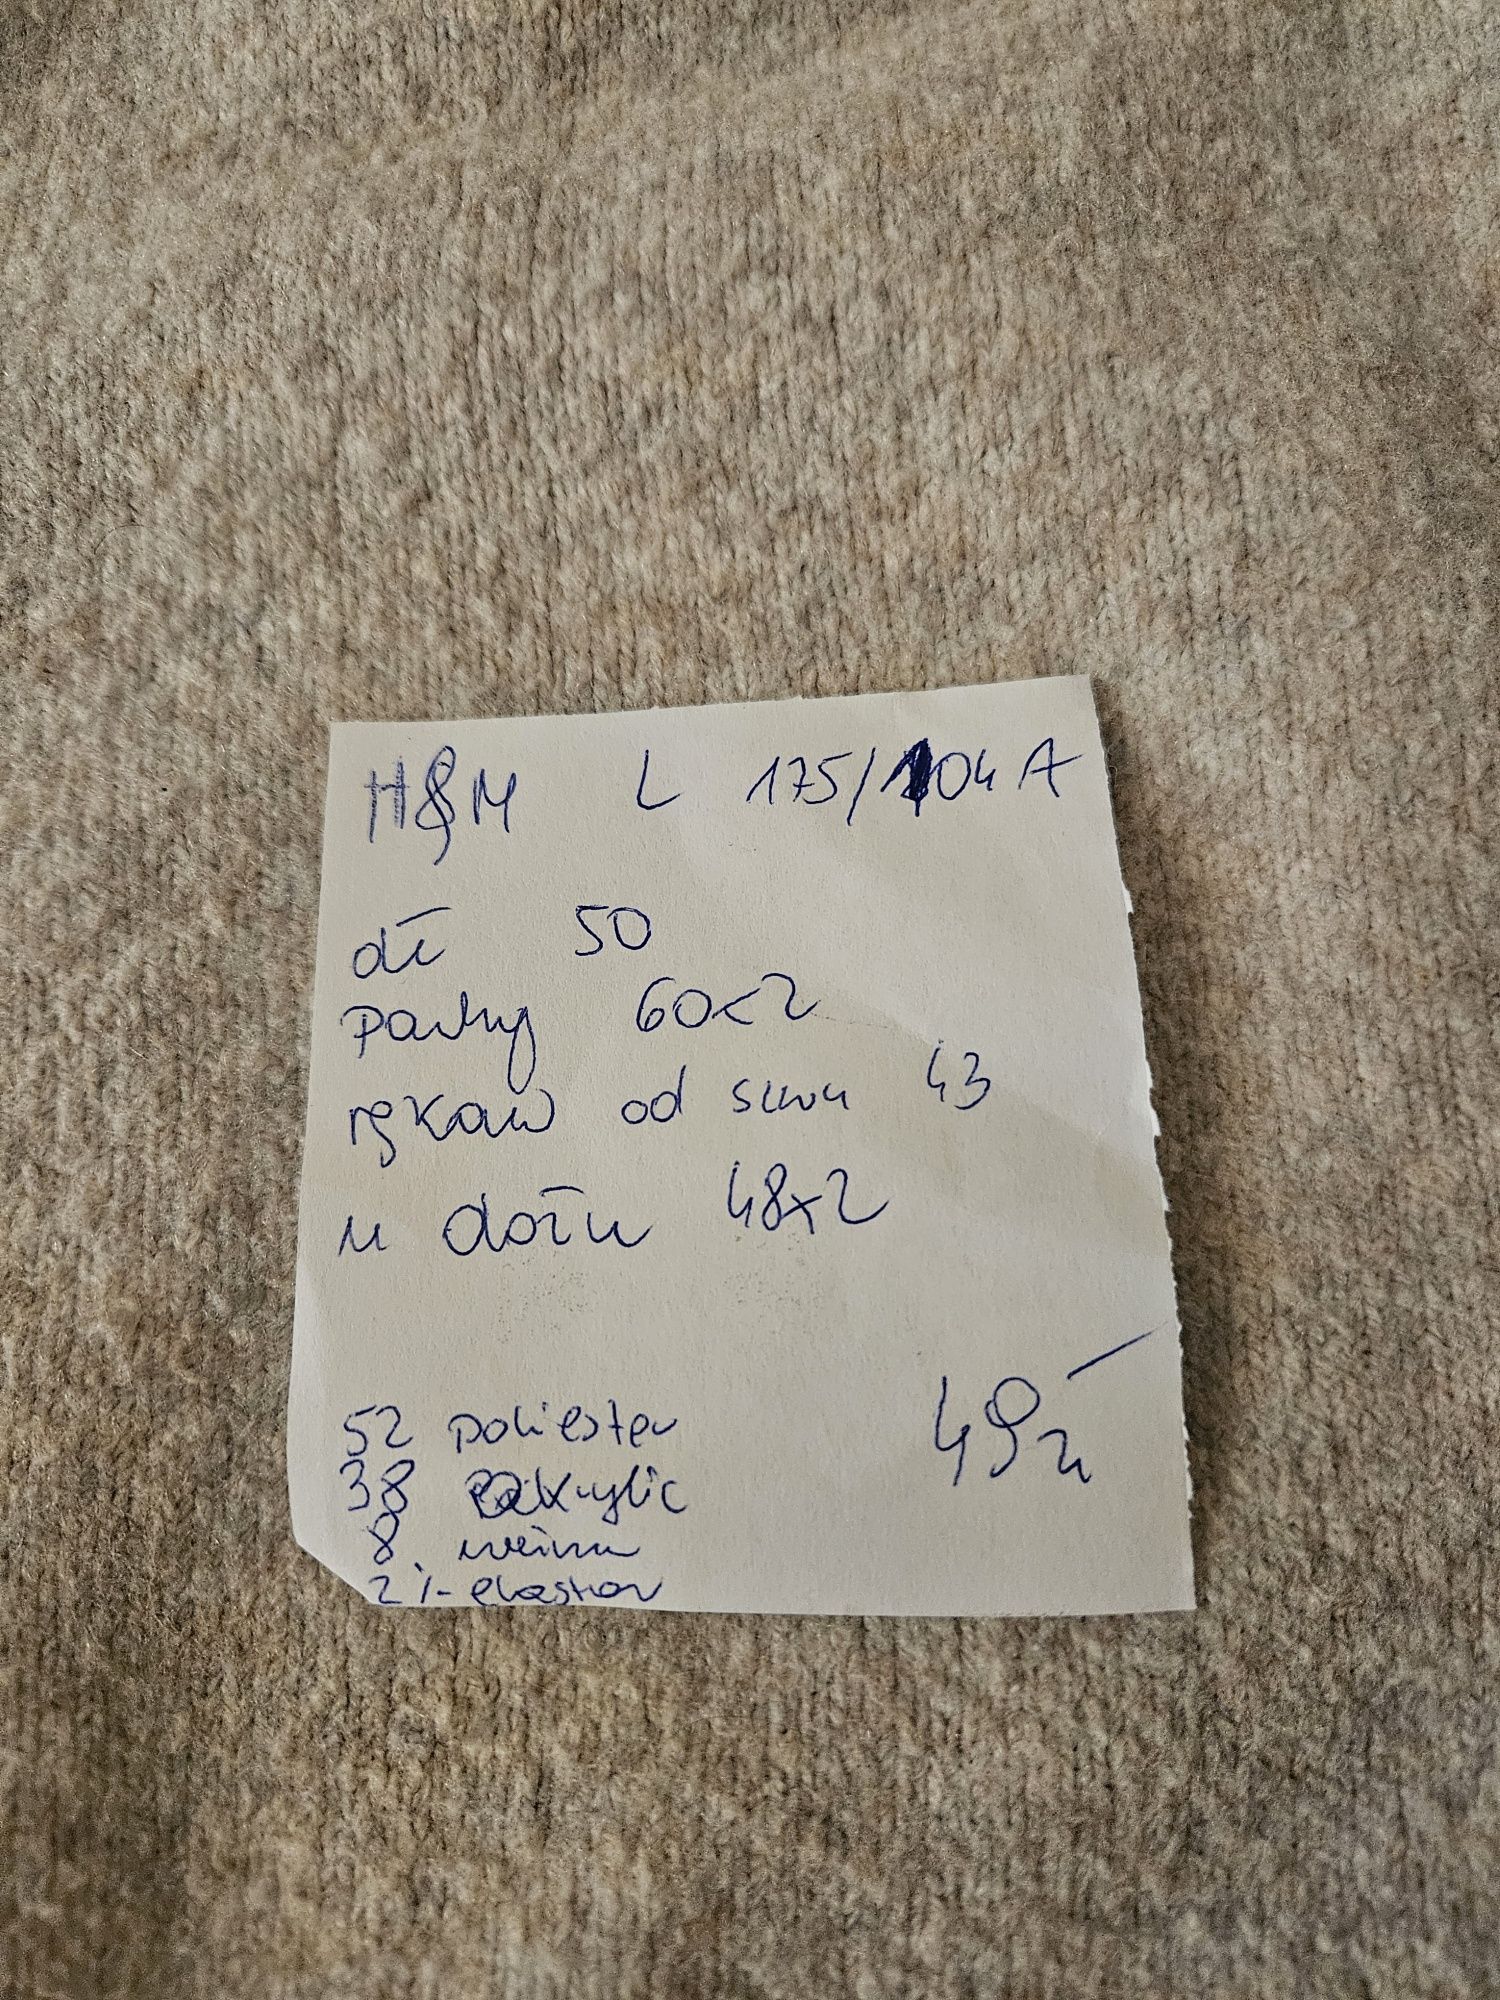 H&M L 175/104A
dł 50
Pachy 60x2
rękaw od szwu 43
u dołu 48x2
52 poliester
38 akrylic
8 wełna
2% elastan
49zł